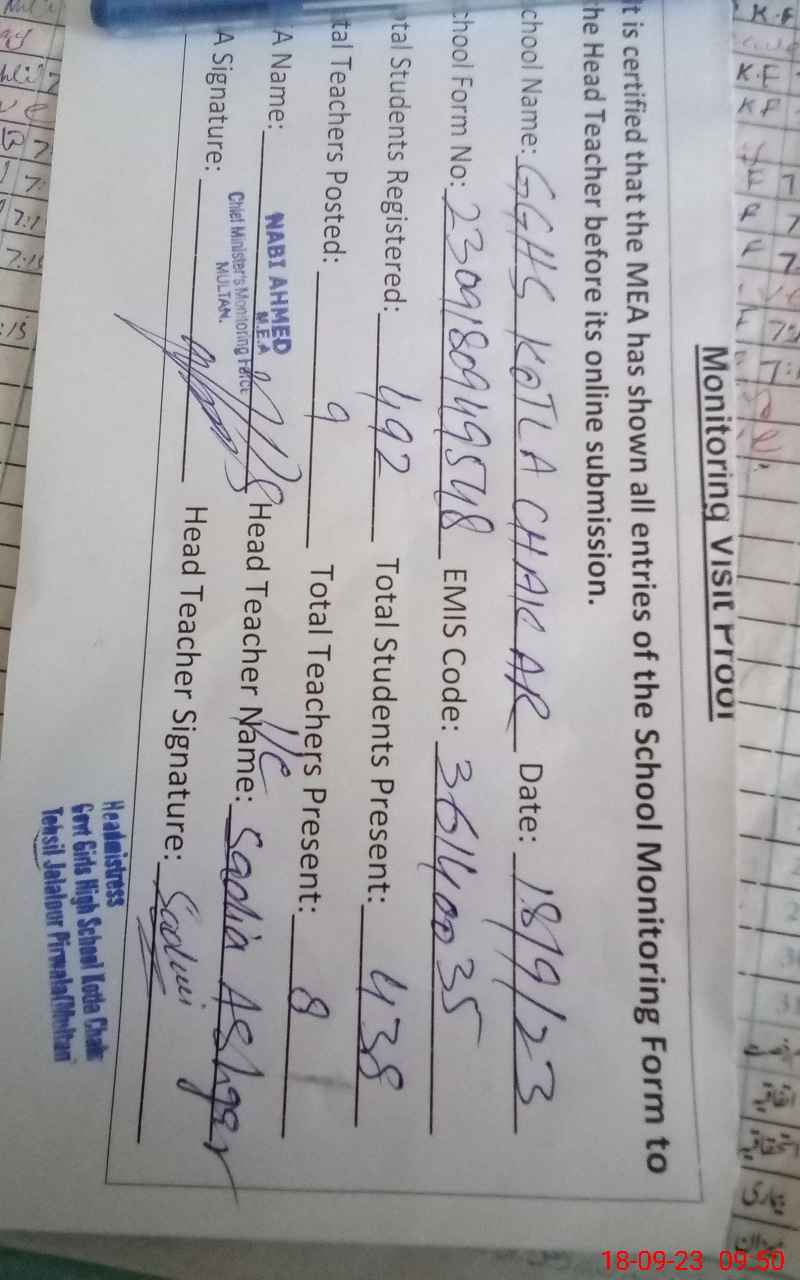 Monitoring Visit Proof
t is certified that the MEA has shown all entries of the School Monitoring Form to
he Head Teacher before its online submission.
chool Name: GGHS KOTLA CHAKAR Date: 18/9/23
chool Form No: 2309180949548 EMIS Code: 36140035
tal Students Registered: 492 Total Students Present: 438
tal Teachers Posted: 9 Total Teachers Present: 8
A Name: Head Teacher Name: I/C Sadia Ashger
NABI AHMED
M.E.A
Chief Minister's Monitoring Force
MULTAN.
A Signature: Head Teacher Signature: Sadia
Headmistress
Govt Girls High School Kotla Chakar
Tehsil Jalalpur Pirwala (Multan
18-09-23 09:50